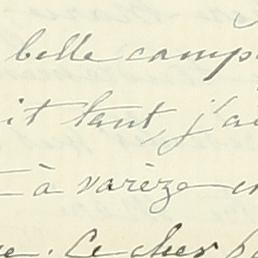 belle camp
it tant, j'ai
à varèze en
. Ce cher